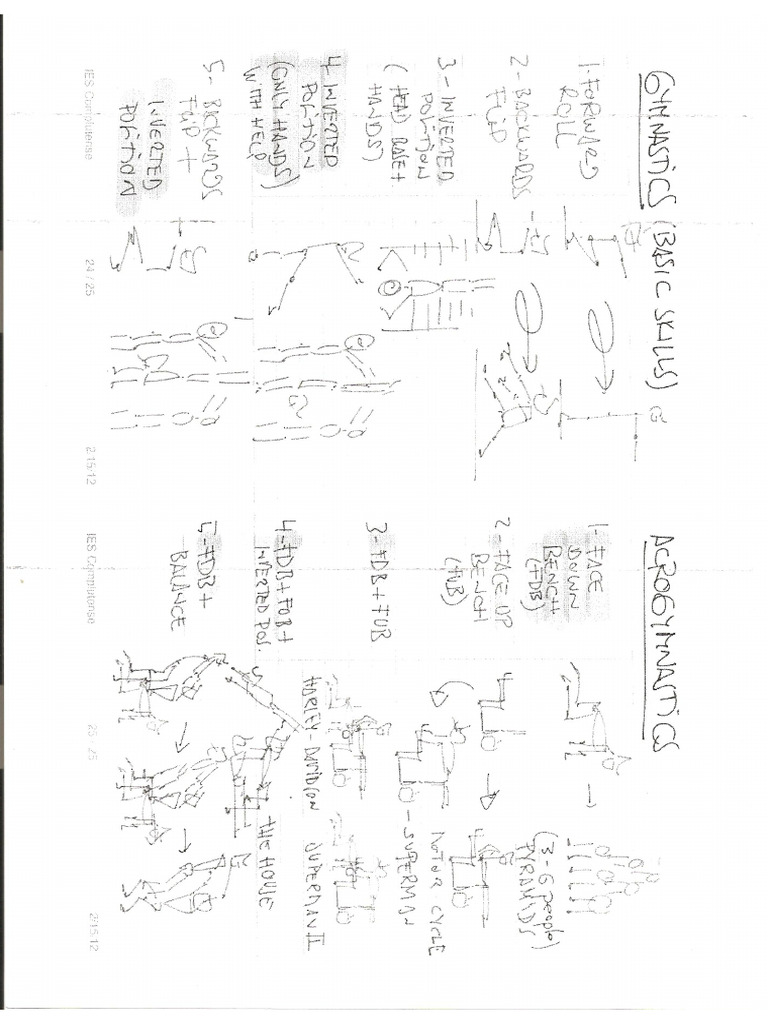 GYMNASTICS (BASIC SKILLS)
1-FORWARD
ROLL
2-BACKWARDS
FLIP
3-INVERTED
POSITION
(HEAD BASE+
HANDS)
4-INVERTED
POSITION
(ONLY HANDS)
WITH HELP
5-BACKWARDS
FLIP +
INVERTED
POSITION
IES Complutense
24 / 25
2/15/12
ACROGYMNASTICS
1-FACE
DOWN
BENCH
(FDB)
(3-6 people)
PYRAMIDS
2-FACE UP
BENCH
(FUB)
MOTOR CYCLE
-SUPERMAN
3-FDB+FUB
HARLEY-DAVIDSON
SUPERMAN II
4-FDB+FUB+
INVERTED POS.
THE HOUSE
5-FDB+
BALANCE
IES Complutense
25 / 25
2/15/12